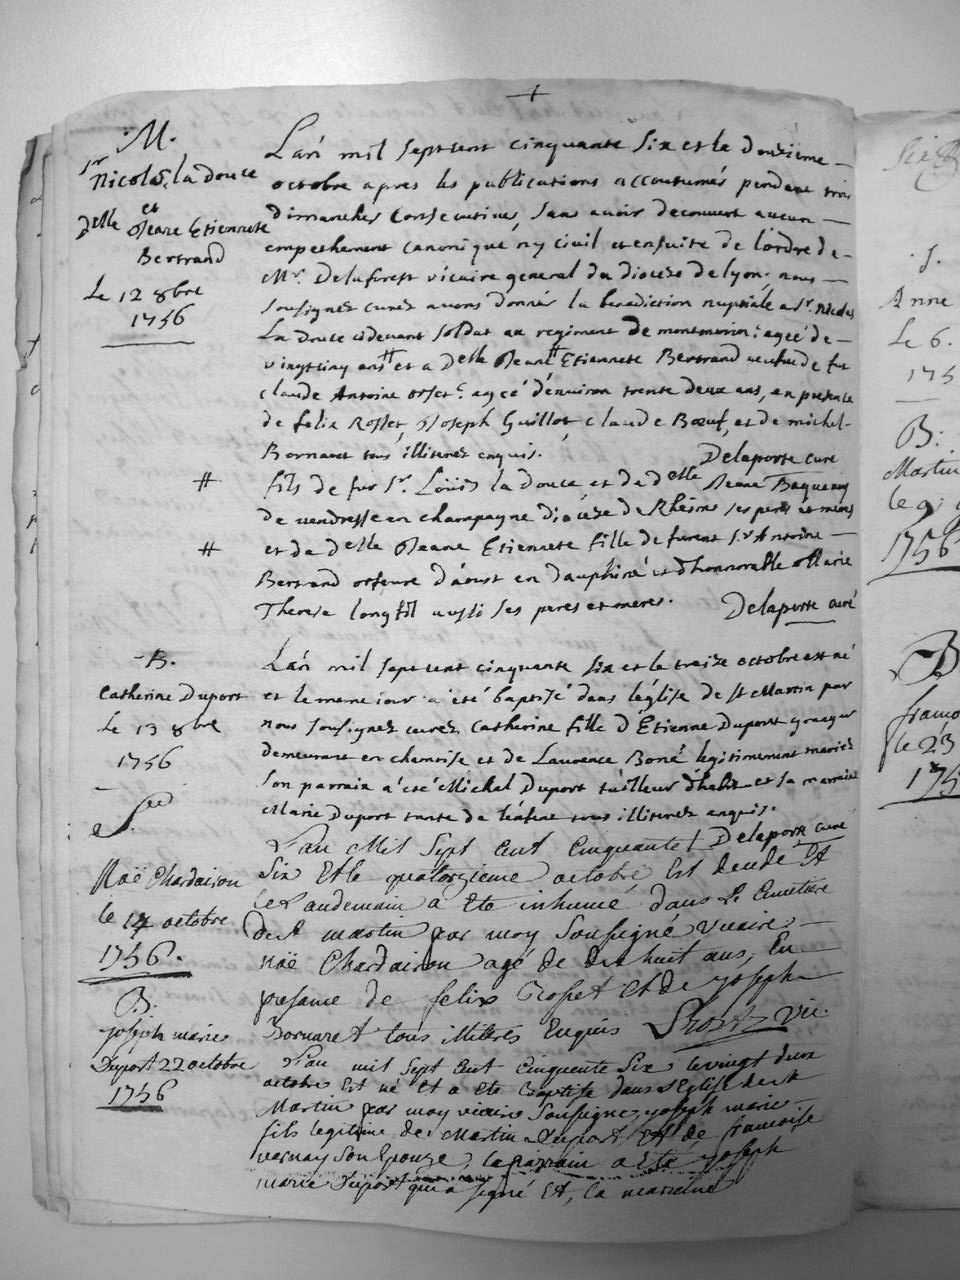 +
M.
Sr
Nicolas la douce
et
Delle Jeane Etiennete
Bertrand
Le 12 8bre
1756
L'an mil sept cent cinquante six et le douzieme
octobre apres les publications accoutumés pendant trois
dimanches consecutives, sans avoir decouvert aucun
empechement canonique ny civil et ensuite de l'ordre de
Mr. Delaforest vicaire general du dioceze de lyon; nous
soussignez curez avons donnés la benediction nuptiale a Sr. Nicolas
La Douce cidevant soldat au regiment de montmorin: agéé de
vingt cinq ans # et a Delle Jeane # Etiennete Bertrand veufue de fut
claude Antoine agéé d'environ trente deux ans, en presence
de felix Rosset, Joseph Guillot claude Bœuf, et de michel
Bornaret tous illiterez enquis. Delaporte curé
# fils de fut Sr. Loüis la douce et de delle Jeane
de vendresse en champagne dioceze de Rheims ses peres et meres
# et da delle Jeane Etiennete fille de furent Sr Antoine
Bertrand orfeure d'aoust en Dauphiné et d'honnorable Marie
Therese longfil aussi ses peres et meres. Delaporte curé
B.
Catherine Duport
Le 13 8bre
1756
L'an mil sept cent cinquante six et le treize octobre est né
et le meme iour a été baptisé dans l'église de St Martin par
nous soussignez curez Catherine fille d'Etienne Duport
demeurant en chamrise et de Laurence Boné legitimement mariez
son parrain a été Michel Duport tailleur d'habit et sa marraine
Marie Duport tante de l'enfant tous illiterez enquis.
Delaporte curé
Sre
Noë Chardairon
le 14 octobre
1756.
L'an Mil Sept Cent Cinquante
Six Et le quatorzieme octobre Est decede Et
le Landemain a Ete inhumé dans Le Cimetiere
de St martin par moy soussigné vicaire
noë Chardairon agé de dix huit ans, En
presance de felix Rosset Et de joseph
Bornaret tous illitérés Enquis vic
B.
joseph marie
Duport 22 octobre
1756
L'an mil sept cent cinquante six le vingt deux
octobre Est né Et a Ete Baptisé dans l'Eglise de st
Martin par moy vicaire Soussigné joseph marie
fils legitime de Martin Duport Et de francoise
vernay son Epouze, le parrain a Ete joseph
marie Duport qui a signé Et, la marraine
J.
Anne
Le 6.
175
B:
Martin
le 9:
1756
B
francois
le 23
175